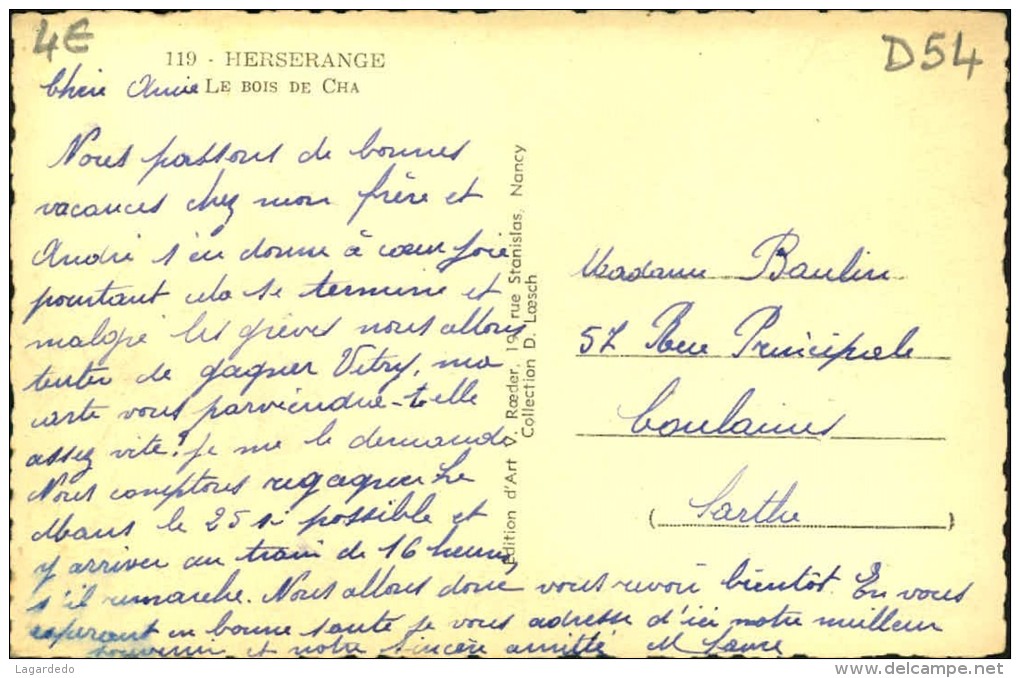 4€
D54
119 - HERSERANGE
LE BOIS DE CHA
Chère Amie
Nous passons de bonnes
vacances chez mon frère et
André s'en donne à cœur joie
pourtant cela se termine et
malgré les grèves nous allons
tenter de gagner Vitry, ma
carte vous parviendra-t-elle
assez vite? je me le demande
Nous comptons regagner Le
Mans le 25 si possible et
y arriver au train de 16 heures
s'il remarche. Nous allons donc vous revoir bientôt. En vous
espérant en bonne santé je vous adresse d'ici notre meilleur
souvenir et notre sincère amitié M
Édition d'Art V. Rœder, 19, rue Stanislas, Nancy
Collection D. Lœsch
Madame Baulin
57 Rue Principale
Coulaines
(Sarthe)
Lagardedo
www.delcampe.net